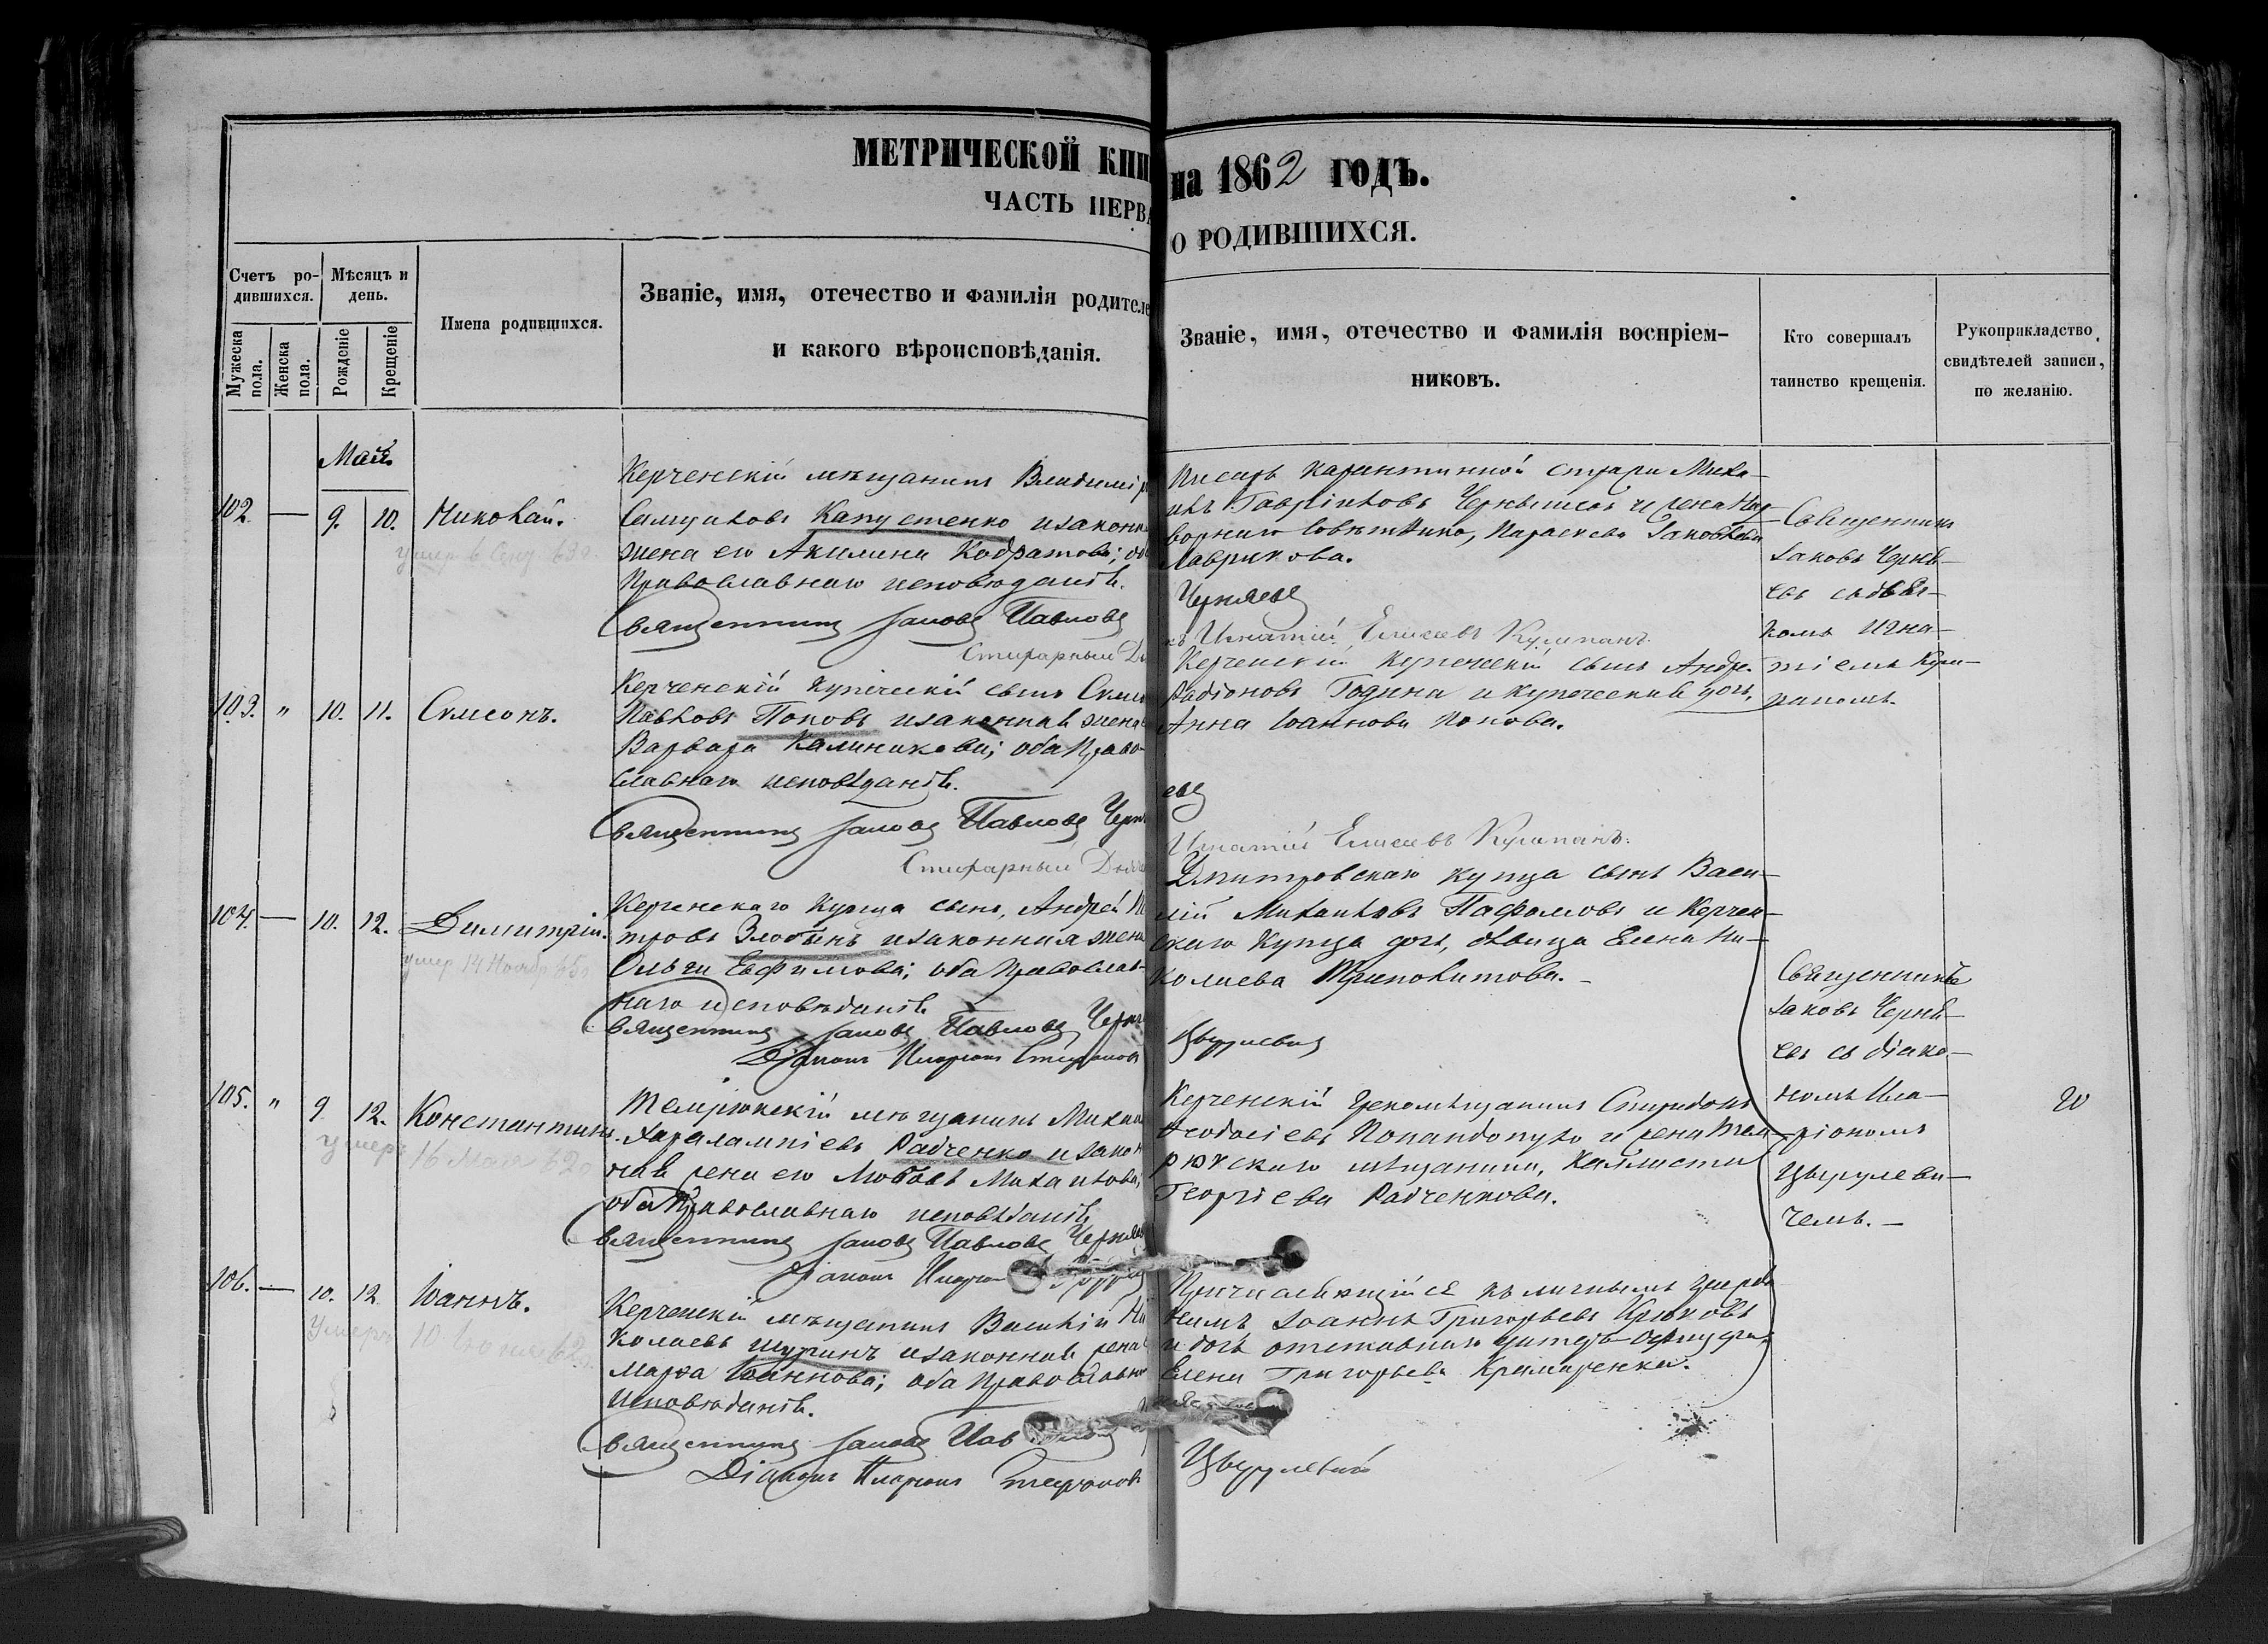 МЕТРИЧЕСКОЙ КНИ
на 1862 ГОДЪ.
ЧАСТЬ ПЕРВА
О РОДИВШИХСЯ.
Счетъ ро-
дившихся.
Мѣсяцъ и
день.
Мужеска
пола.
Женска
пола.
Рожденіе
Крещеніе
Имена родившихся.
Званіе, имя, отечество и фамилія родителе
и какого вѣроисповѣданія.
Званіе, имя, отечество и фамилія воспріем-
никовъ.
Кто совершалъ
таинство крещенія.
Рукоприкладство
свидѣтелей записи,
по желанію.
Май
102. — 9. 10. Николай.
Керченскій мѣщанинъ Владимір
Самуиловъ Капустенко и законна
жена его Акилина Кодратова; об
Православнаго исповѣданія.
Священникъ Іаковъ Павловъ
Стихарный Дь
Писарь карантинной стражи Миха-
илъ Гавріиловъ Чернышевъ и жена Над-
ворнаго Совѣтника, Параскева Іаковлева
Лаврикова.
Черняевъ
Игнатій Елисеевъ
Священникъ
Іаковъ Черня-
евъ съ дьяч-
комъ Игна-
тіемъ
103. " 10. 11. Симеонъ.
Керченскій купеческій сынъ Симео
Павловъ Поповъ и законная жена е
Варвара Калиникова; оба Право-
славнаго исповѣданія.
Священникъ Іаковъ Павловъ Черня
Стихарный Дьяч
Керченскій купеческій сынъ Андре
Радіоновъ Година и купеческая дочь,
Анна Іоаннова Попова.
евъ
Игнатій Елисеевъ
104. — 10. 12. Димитрій.
умер 14 Ноябр 65
Керченскаго Купца сынъ, Андрей П
тровъ Злобинъ и законная жена
Ольга Евфимова; оба Православ-
наго исповѣданія
Священникъ Іаковъ Павловъ Черня
Діаконъ Иларіонъ Стефановъ
Дмитровскаго купца сынъ Васи-
лій Михаиловъ Пафомовъ и Керчен-
скаго Купца дочь, дѣвица Елена Ни-
колаева Триполитова.
Цыгулевич
Священникъ
Іаковъ Черня-
евъ съ діако-
номъ Ила-
ріономъ
Цыгулеви-
чемъ.—
105. " 9 12. Константинъ.
умеръ 16 Мая 62
Темрюкскій мѣщанинъ Михаил
Харалампіевъ Радченко и закон
ная жена его Любовь Михаилова,
оба Православнаго исповѣданія
Священникъ Іаковъ Павловъ Черняев
Діаконъ Иларіон
Керченскій Цехомѣщанинъ Спиридонъ
Ѳеодосіевъ Попандопуло и жена Тем-
рюкскаго мѣщанина, Каллиста
Георгіева Радченкова.
106. — 10. 12. Іоаннъ.
Умеръ 10 Іюня 62
Керченскій мѣщанинъ Василій Ни
колаевъ Шуринъ и законная жена е
Марѳа Іоаннова; оба Православна
Исповѣданія.
Священникъ Іаковъ Пав
Діаконъ Иларіонъ Стефанов
Причисляющійся къ личнымъ
Іоаннъ Григорьевъ Крюковъ
и дочь отставнаго унтеръ-офицера,
Елена Григорьева Крамаренкова.
Цыгулевич